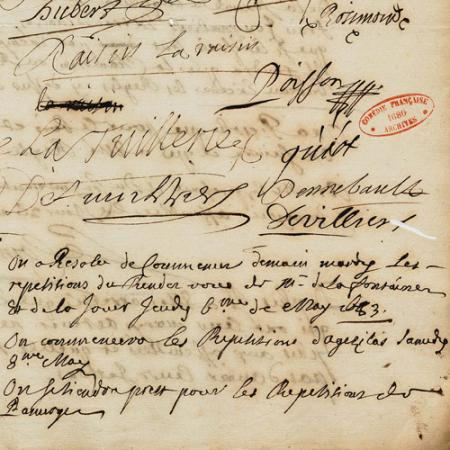 hubert Rosimond
Raisin La raisin
Poisson
COMÉDIE FRANÇAISE
1680
ARCHIVES
La Tuillerie guiot
Dennebault
Devilliers
On a Resolu de Commencer demain mardy les
repetitions du Render vous de Mr. de la fontaine
& de la Jouer Jeudy 6.me de May 1683.
On commencera les Repetitions d'agesilas Samedy
8me May
On se tiendra prest pour les Repetitions de
Panurge